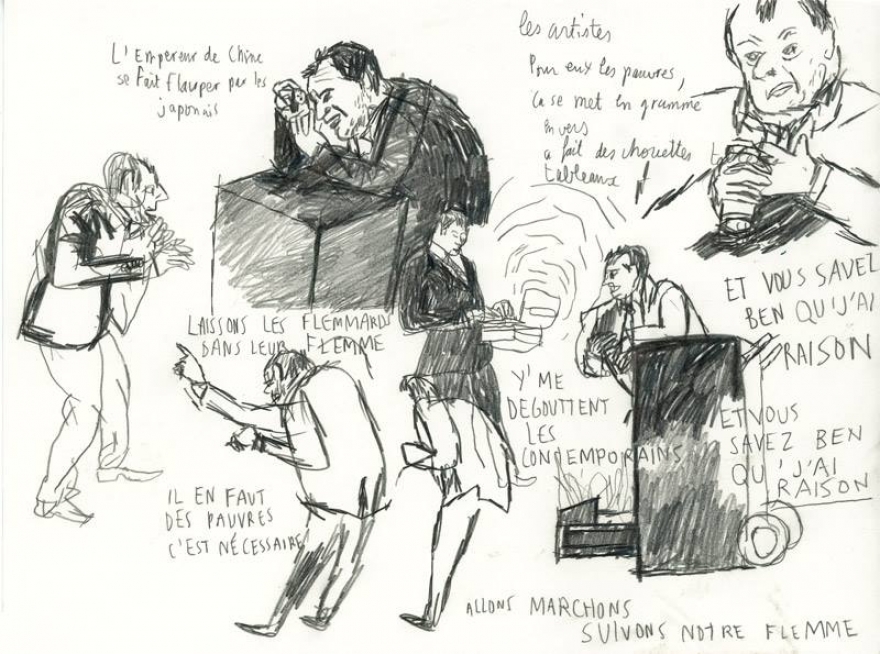 L'Empereur de Chine
se fait flauper par les
japonais
les artistes
Pour eux les pauvres,
ça se met en gramme
en vers
a fait des chouettes
tableaux
ET VOUS SAVEZ
BEN QU'J'AI
RAISON
LAISSONS LES FLEMMARDS
DANS LEUR FLEMME
Y'ME
DEGOUTTENT
LES
CONTEMPORAINS
ET VOUS
SAVEZ BEN
QU'J'AI
RAISON
IL EN FAUT
DES PAUVRES
C'EST NÉCESSAIRE
ALLONS MARCHONS
SUIVONS NOTRE FLEMME